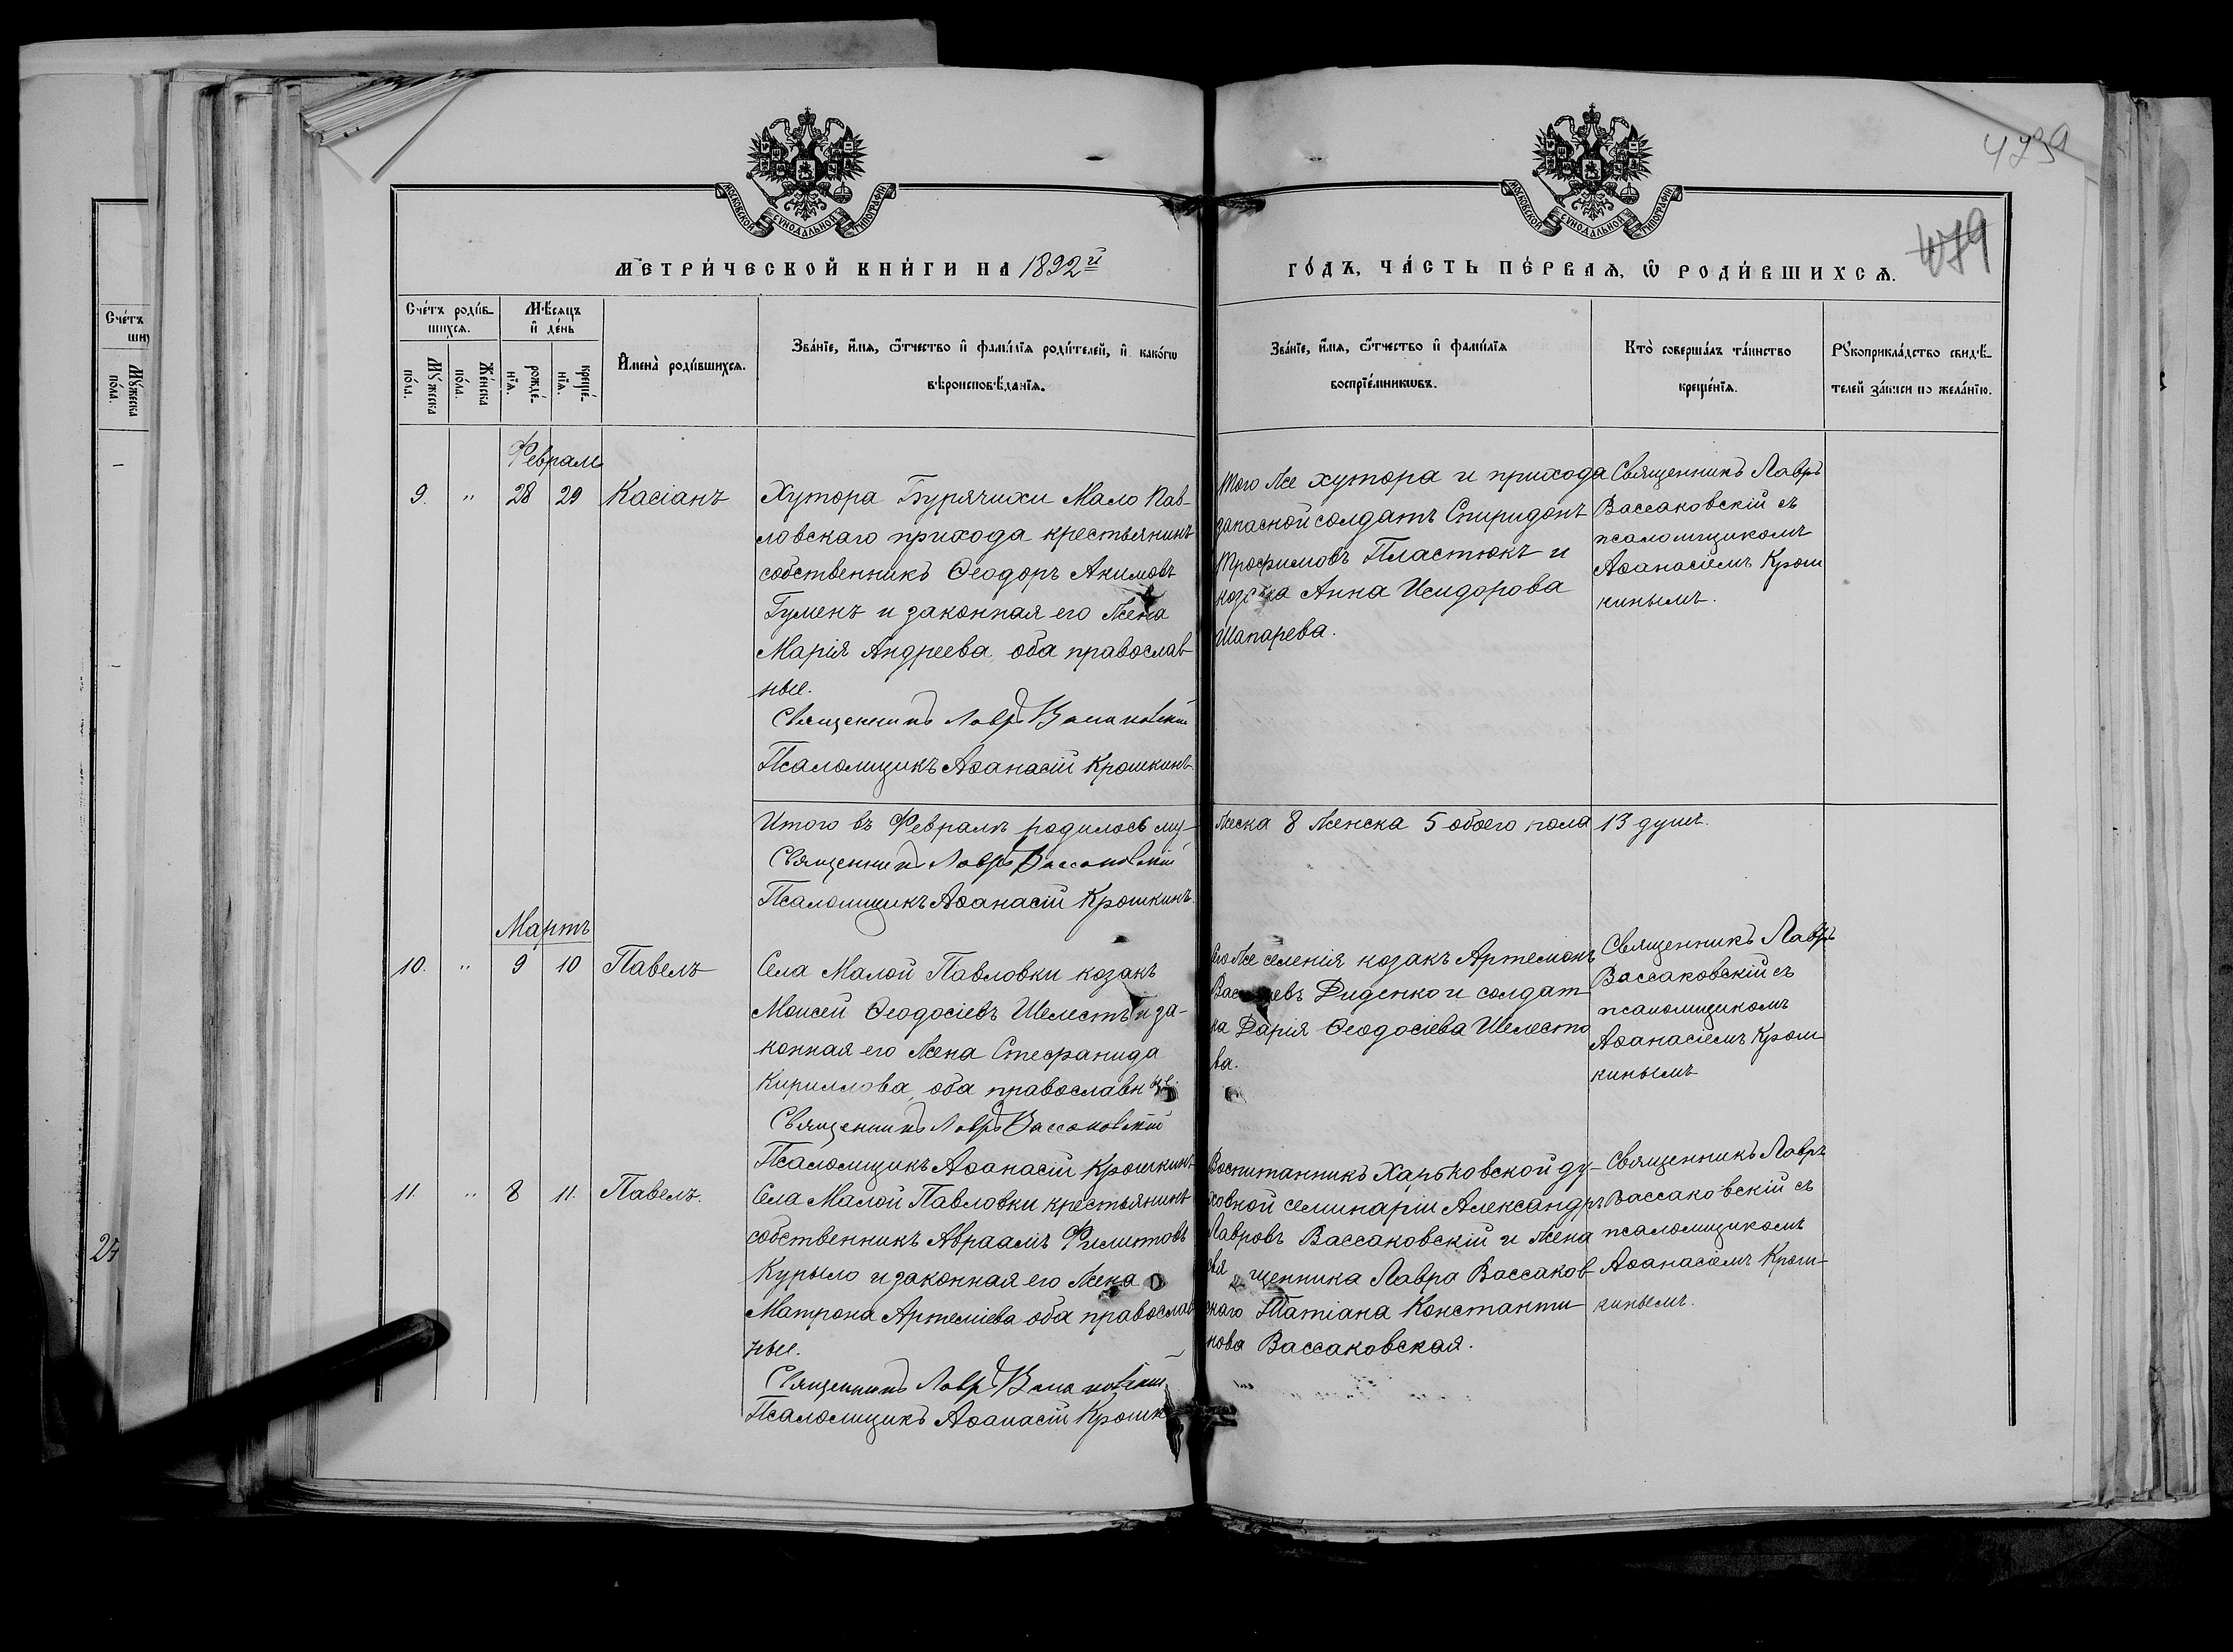 4739
479
МОСКОВСКОЙ СѴНОДАЛЬНОЙ ТИПОГРАФІИ
МОСКОВСКОЙ СѴНОДАЛЬНОЙ ТИПОГРАФІИ
МЕТРИ́ЧЕСКОЙ КНИ́ГИ НА 1892й
ГО́ДЪ, ЧА́СТЬ ПЕ́РВАѦ, Ѿ РОДИ́ВШИХСѦ.
Сче́тъ роди́в-
шихсѧ.
Му́жеска
по́ла.
Же́нска
по́ла.
Мѣ́сѧцъ
и҆ де́нь
рожде́-
нїѧ.
креще́-
нїѧ.
И҆мена̀ роди́вшихсѧ.
Зва́нїе, и҆́мѧ, ѻ҆́тчество и҆ фами́лїѧ роди́телей, и҆ како́гѡ
вѣроисповѣ́данїѧ.
Зва́нїе, и҆́мѧ, ѻ҆́тчество и҆ фами́лїѧ
воспрїе́мникѡвъ.
Кто̀ соверша́лъ та́инство
креще́нїѧ.
Рꙋкоприкла́дство свидѣ́-
телей за́писи по жела́нїю.
Сче́тъ
Му́жеска
по́ла.
24
Февраль
9. " 28 29 Касіанъ
Хутора Бурячихи Мало Пав-
ловскаго прихода крестьянинъ
собственникъ Ѳеодоръ Акимовъ
Гуменъ и законная его жена
Марія Андреева, оба православ-
ные.
Священникъ Лавръ Вассаковскій
Псаломщикъ Аѳанасій Крошкинъ.
Того же хутора и прихода
запасной солдатъ Спиридонъ
Трофимовъ Пластюкъ и
козачка Анна Исидорова
Шапарева.
Священникъ Лавръ
Вассаковскій съ
псаломщикомъ
Аѳанасіемъ Крош
кинымъ.
Итого въ Февралѣ родилось му-
жеска 8 женска 5 обоего пола 13 душъ.
Священникъ Лавръ Вассаковскій
Псаломщикъ Аѳанасій Крошкинъ.
Мартъ
10. " 9 10 Павелъ
Села Малой Павловки козакъ
Моисей Ѳеодосіевъ Шелестъ и за-
конная его жена Стефанида
Кириллова, оба православные.
Священникъ Лавръ Вассаковскій
Псаломщикъ Аѳанасій Крошкинъ
Того же селенія козакъ Артемонъ
Диденко и солдат
ка Дарія Ѳеодосіева Шелесто
ва.
Священникъ Лавръ
Вассаковскій съ
псаломщикомъ
Аѳанасіемъ Крош
кинымъ
11. " 8 11. Павелъ.
Села Малой Павловки крестьянинъ
собственникъ Авраамъ Филиповъ
Курыло и законная его жена
Матрона Артеміева оба православ
ные.
Священникъ Лавръ Вассаковскій
Псаломщикъ Аѳанасій Крошк
Воспитанникъ Харьковской ду-
ховной семинаріи Александръ
Лавровъ Вассаковскій и жена
свя щенника Лавра Вассаков
скаго Татіана Константи
нова Вассаковская.
Священникъ Лавръ
Вассаковскій съ
псаломщикомъ
Аѳанасіемъ Крош-
кинымъ.